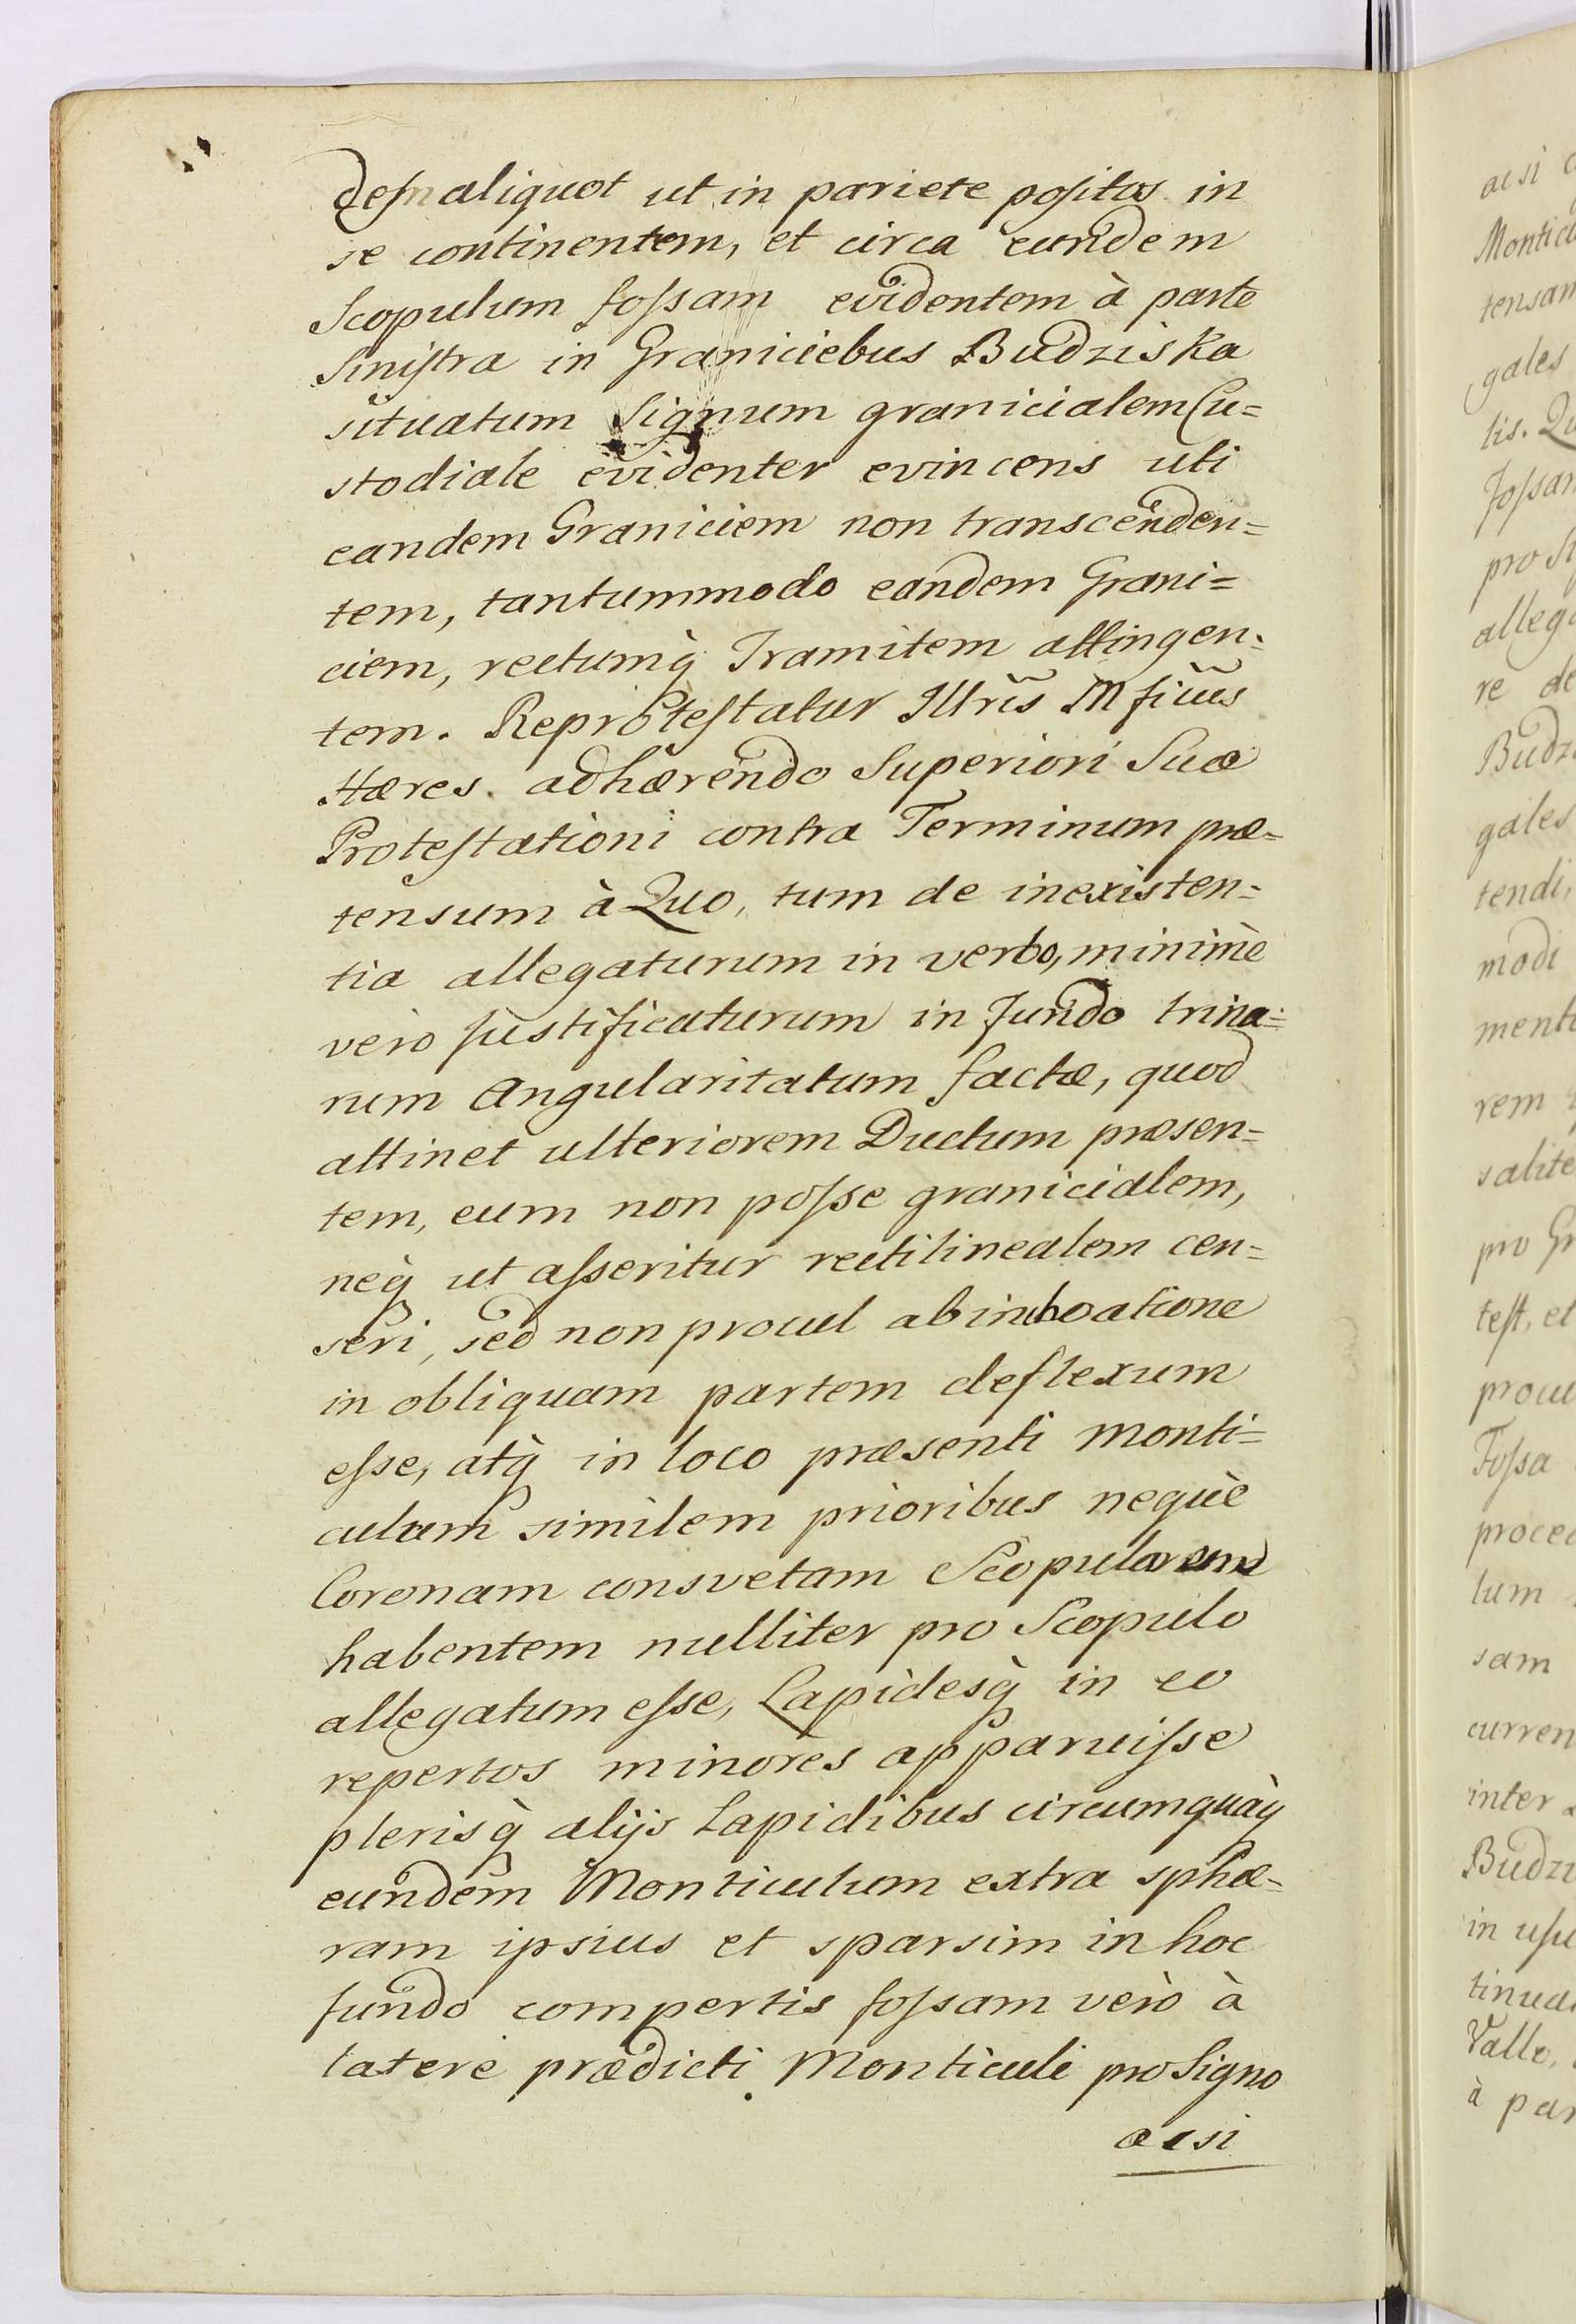 des aliquot ut in pariete positos in
se continentem, et circa eundem
Scopulum fossam evidentem à parte
Sinistra in Graniciebus Budziska
situatum Signum granicialem Cu=
stodiale evidenter evincens uti
eandem Graniciem non transcenden=
tem, tantummodo eandem Grani=
ciem, rectumq̀ Tramitem attingen=
tem. Reprotestatur Illrĩs Mf̃icus
Hæres. adhærendo Superiori Suæ
Protestationi contra Terminum præ=
tensum à Quo, tum de inexisten=
tia allegaturum in verbo, minimè
verò justificaturum in Fundo trina=
rum Angularitatum factæ, quod
attinet ulteriorem Ductum præsen=
tem, eum non posse granicialem,
neq̀ ut asseritur rectilinealem cen=
seri, sed non procul ab inchoatione
in obliquam partem deflexum
esse, atq̀ in loco præsenti Monti=
culum similem prioribus nequè
Coronam consvetam Scopularem
habentem nulliter pro Scopulo
allegatum esse, Lapidesq̀ in eo
repertos minores apparuisse
plerisq̀ alijs Lapidibus circumquàq
eundem Monticulum extra sphæ=
ram ipsius et sparsim in hoc
fundo compertis fossam verò à
latere prædicti Monticuli pro Signo
acsi
acsi
Montic
tensam
gales
lis. Qu
Fossam
pro Si
allega
re de
Budzi
gales
tendi,
modi
ment
rem
salite
pro Gr
test, et
procu
Fossa
proce
lum
sam
curren
inter
Budzi
in usu
tinua
Valle,
à par